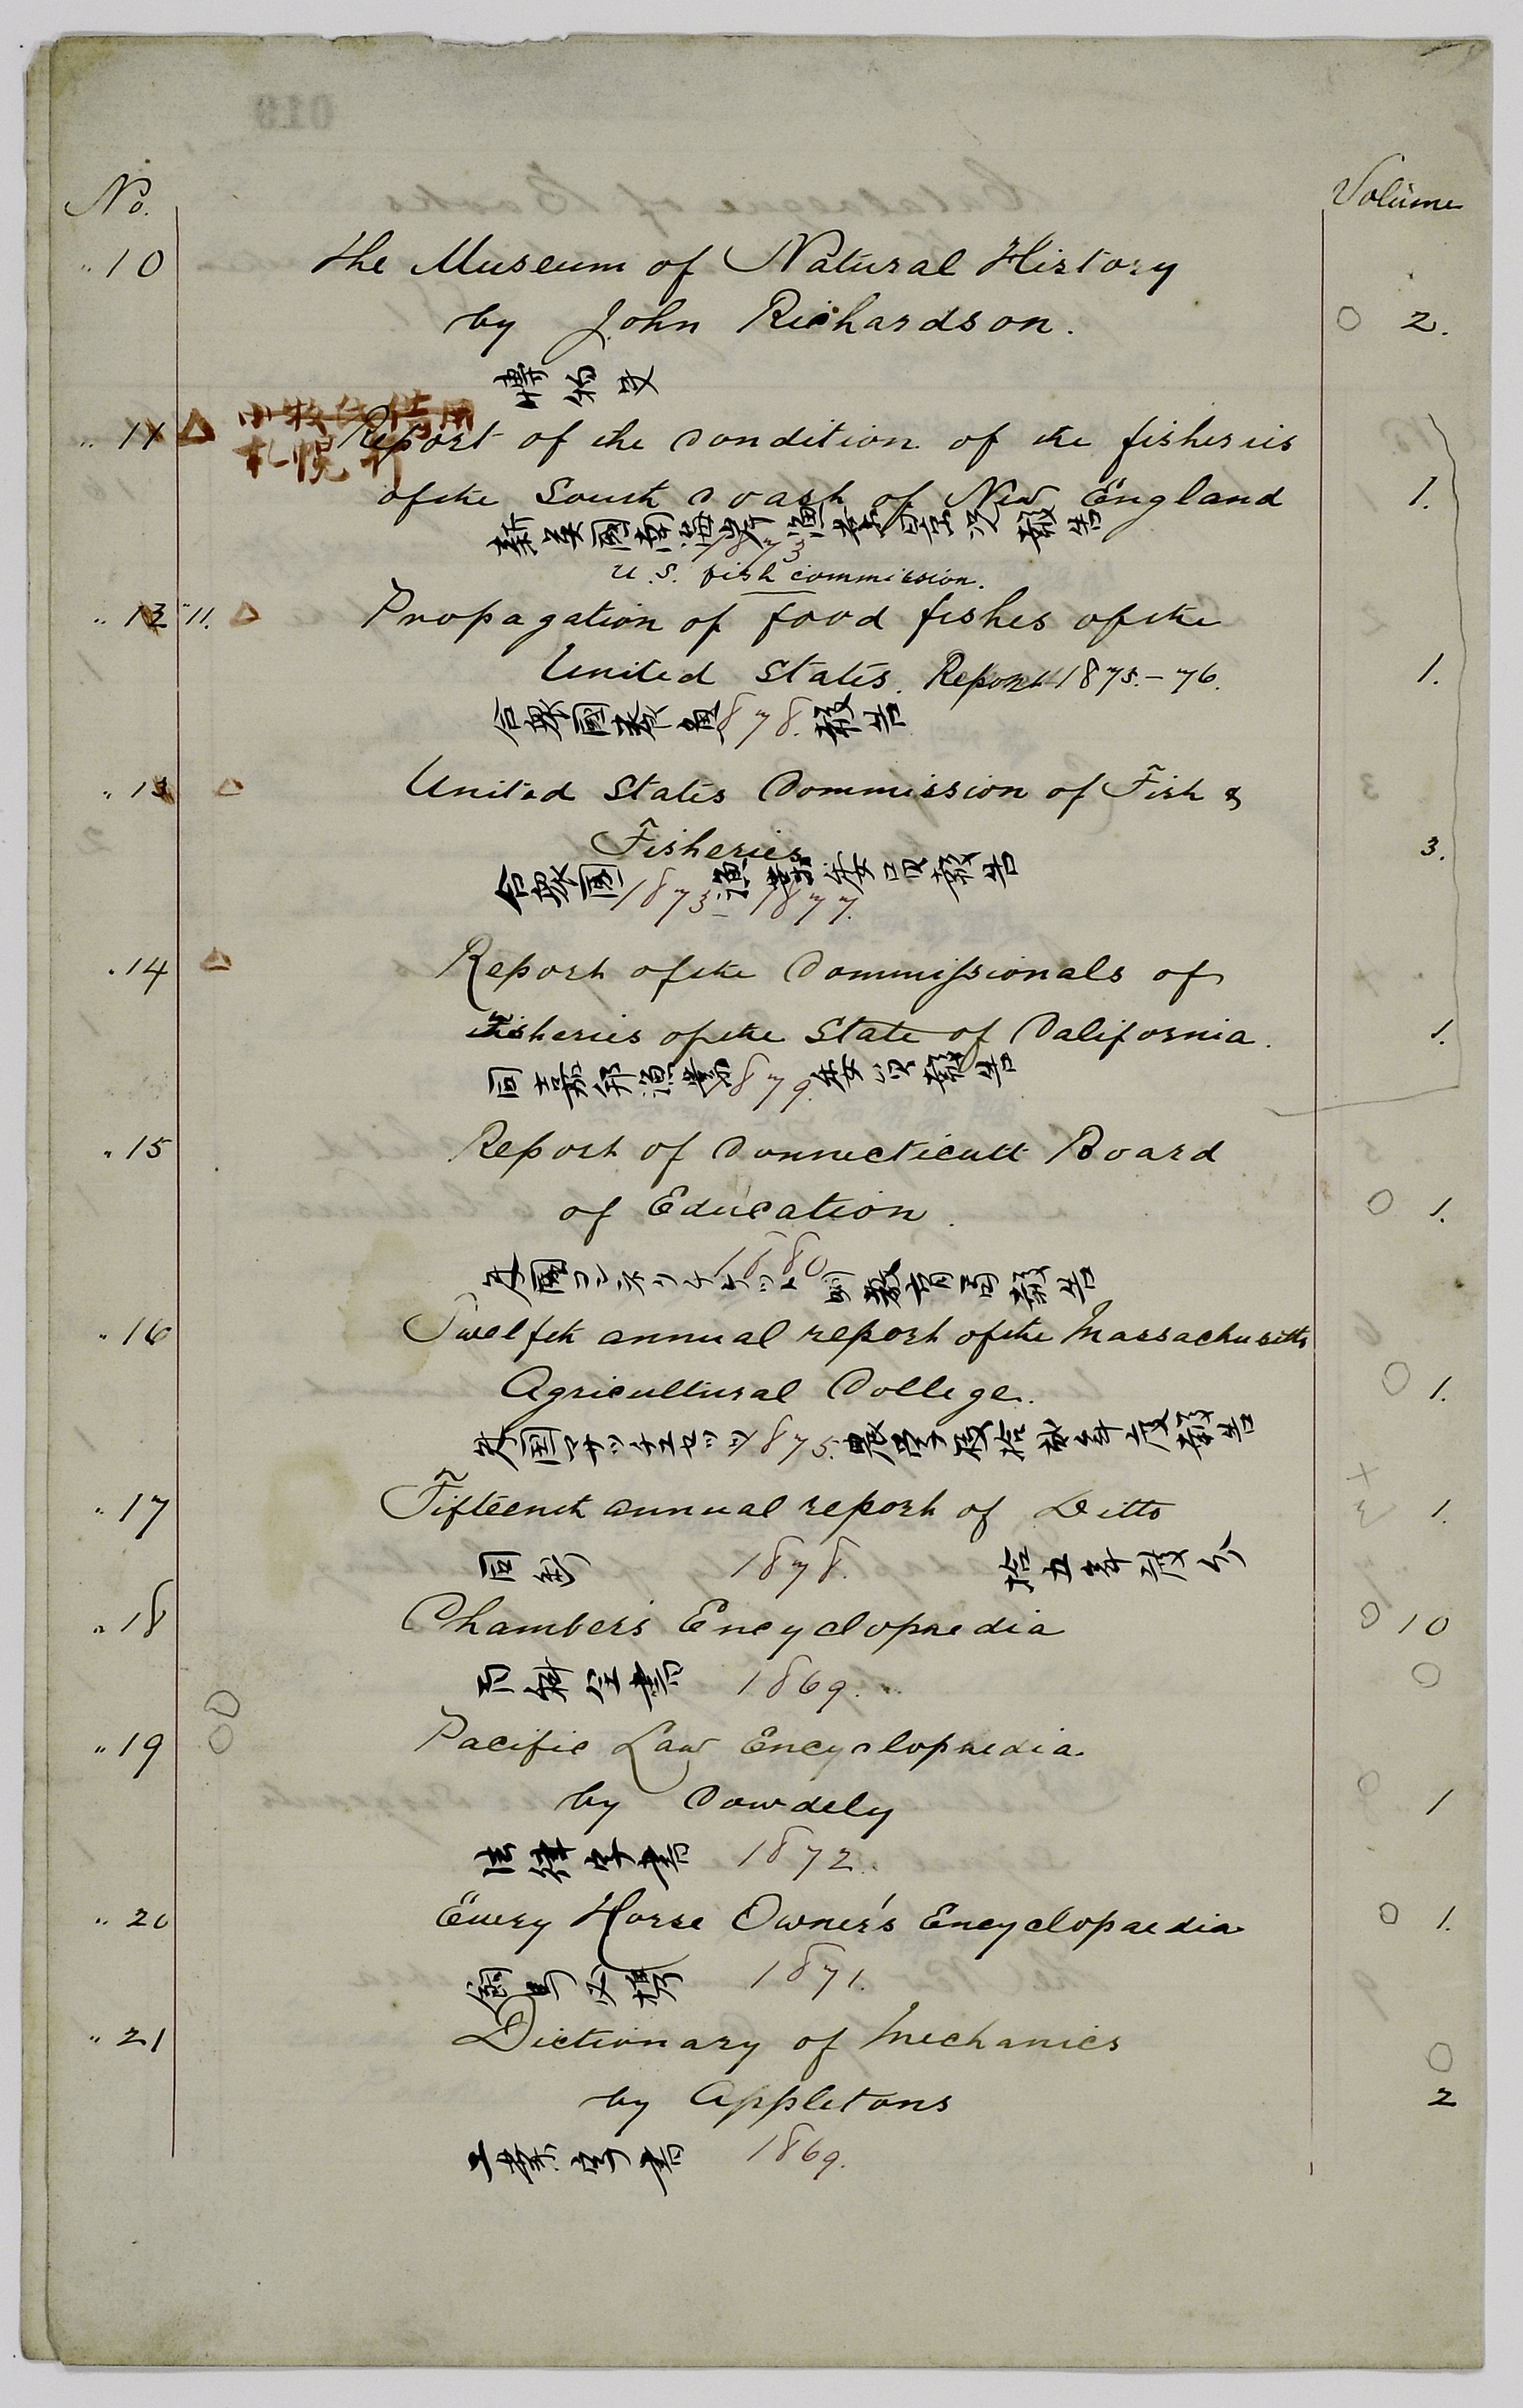 No. Volume
"10 The Museum of Natural History
by John Richardson. 2.
博物史
"11 小牧氏借用
札幌行
Report of the Condition of the fisheries
of the South Coast of New England 1.
1873
U.S. fish commission.
"12 "11. Propagation of food fishes of the
United States. Report 1875.-76. 1.
合衆國養魚 1878. 報告
"13 United States Commission of Fish &
Fisheries 3.
合衆國 漁業委員報告
1873-1877.
"14 Report of the Commissionals of
Fisheries of the State of California. 1.
1879.
"15 Report of Connecticutt Board
of Education. 1.
1880
米國コンネリチカット州教育局報告
"16 Twelfth annual report of the Massachusetts
Agricultural College. 1.
米國マサッチュセッツ 1875. 農学校拾弐年度報告
"17 Fifteenth annual report of Ditto 1.
同前 1878. 拾五年度分
"18 Chamber's Encyclopaedia 10
百科全書 1869.
"19 Pacific Law Encyclopaedia
by Cowdely 1
法律字書 1872.
"20 Every Horse Owner's Encyclopaedia 1.
1871.
"21 Dictionary of Mechanics
by Appletons 2
工業字書 1869.